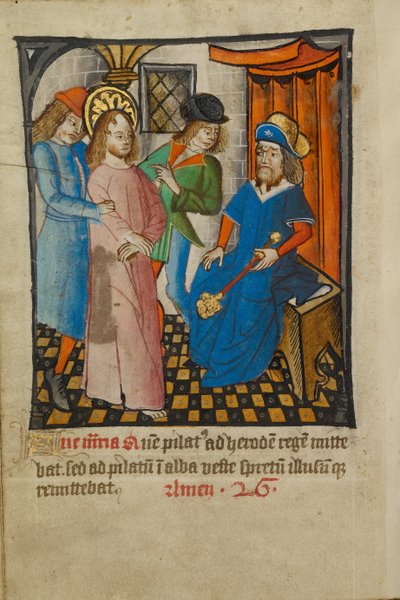 Aue m̄ria Quē pilatꝰ ad herodē regē mitte
bat. sed ad pilatū ī alba veste spretū illusū qꝫ
remittebat. Amen · 26 ·